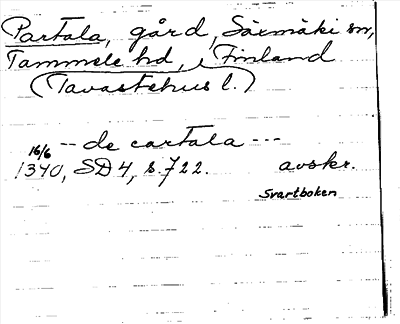 Partala, gård, Särmäki sn,
Tammele hd, i Finland
(Tavastehus l.)
-- de cartala ---
16/6
1340, SD 4, s. 722. avskr.
Svartboken